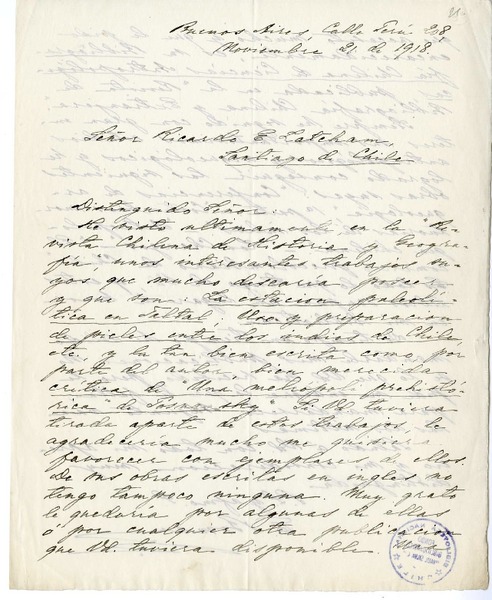 Buenos Aires, Calle Perú 208,
Noviembre 21 de 1918.
Señor Ricardo E Latcham,
Santiago de Chile
Distinguido Señor:
He visto ultimamente en la "Re-
vista Chilena de Historia y Geogra-
fia," unos interesantes trabajos su-
yos que mucho desearia poseer
y que son: La estacion paleolí-
tica en Taltal; Uso y preparacion
de pieles entre los indios de Chile,
etc, y la tan bien escrita como, por
parte del autor, bien merecida
critica de "Una metropoli prehistó-
rica" de Posnansky". Si Vd tuviera
tirada aparte de estos trabajos, le
agradeceria mucho me quisiera
favorecer con ejemplares de ellos.
De sus obras escritas en ingles no
tengo tampoco ninguna. Muy grato
le quedaria por algunas de ellas
ó por cualquier otra publicacion
que Vd. tuviera disponible.